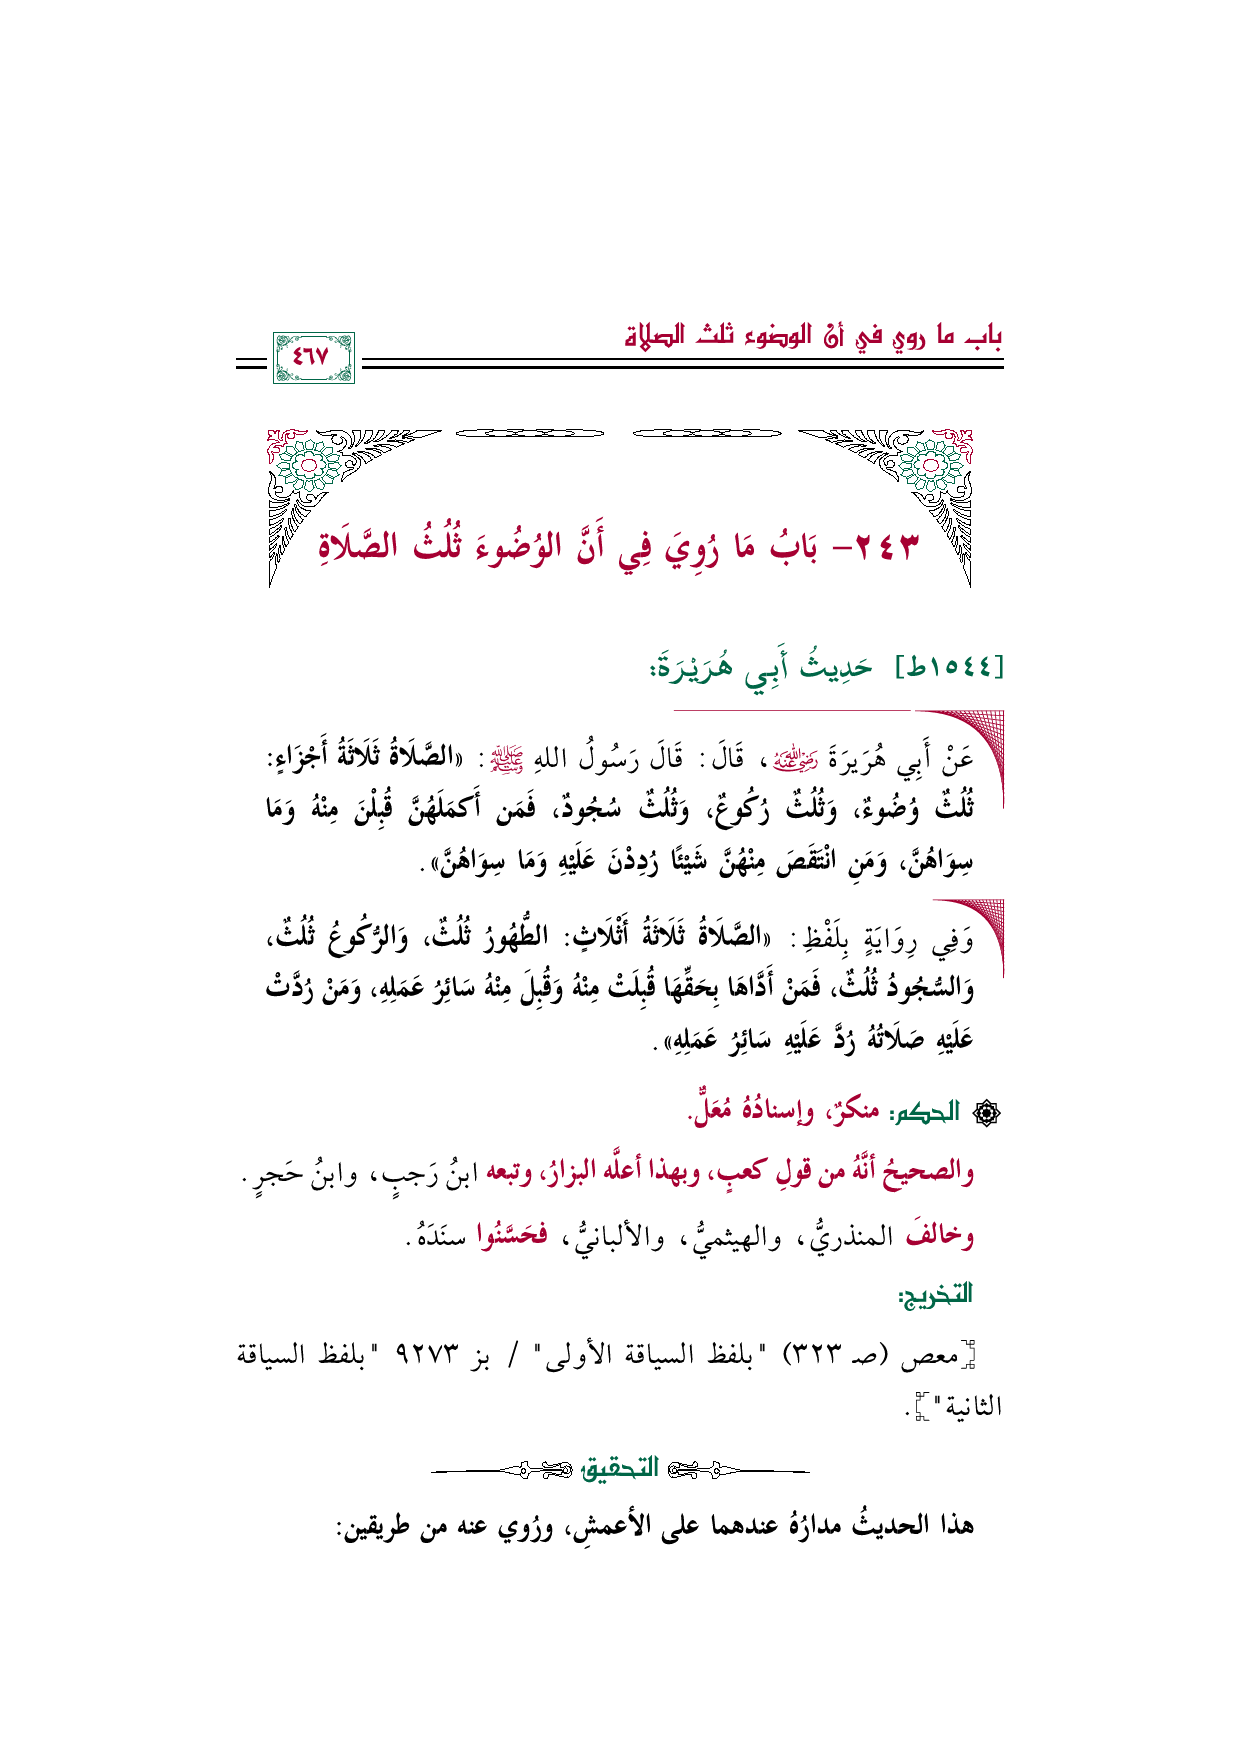 باب ما روي في أن الوضوء ثلث الصلاة
٤٦٧
٢٤٣- بَابُ مَا رُوِيَ فِي أَنَّ الوُضُوءَ ثُلُثُ الصَّلَاةِ
[١٥٤٤ط] حَدِيثُ أَبِي هُرَيْرَةَ:
عَنْ أَبِي هُرَيرَةَ رضي الله عنه، قَالَ: قَالَ رَسُولُ اللهِ ﷺ: «الصَّلَاةُ ثَلَاثَةُ أَجْزَاءٍ:
ثُلُثٌ وُضُوءٌ، وَثُلُثٌ رُكُوعٌ، وَثُلُثٌ سُجُودٌ، فَمَن أَكمَلَهُنَّ قُبِلْنَ مِنْهُ وَمَا
سِوَاهُنَّ، وَمَنِ انْتَقَصَ مِنْهُنَّ شَيْئًا رُدِدْنَ عَلَيْهِ وَمَا سِوَاهُنَّ».
وَفِي رِوَايَةٍ بِلَفْظِ: «الصَّلَاةُ ثَلَاثَةُ أَثْلَاثٍ: الطُّهُورُ ثُلُثٌ، وَالرُّكُوعُ ثُلُثٌ،
وَالسُّجُودُ ثُلُثٌ، فَمَنْ أَدَّاهَا بِحَقِّهَا قُبِلَتْ مِنْهُ وَقُبِلَ مِنْهُ سَائِرُ عَمَلِهِ، وَمَنْ رُدَّتْ
عَلَيْهِ صَلَاتُهُ رُدَّ عَلَيْهِ سَائِرُ عَمَلِهِ».
الحكم: منكرٌ، وإسنادُهُ مُعَلٌّ.
والصحيحُ أنَّهُ من قولِ كعبٍ، وبهذا أعلَّه البزارُ، وتبعه ابنُ رَجبٍ، وابنُ حَجرٍ.
وخالفَ المنذريُّ، والهيثميُّ، والألبانيُّ، فحَسَّنُوا سنَدَهُ.
التخريج:
[معص (صـ ٣٢٣) "بلفظ السياقة الأولى" / بز ٩٢٧٣ "بلفظ السياقة
الثانية"].
التحقيق
هذا الحديثُ مدارُهُ عندهما على الأعمشِ، ورُوي عنه من طريقين: